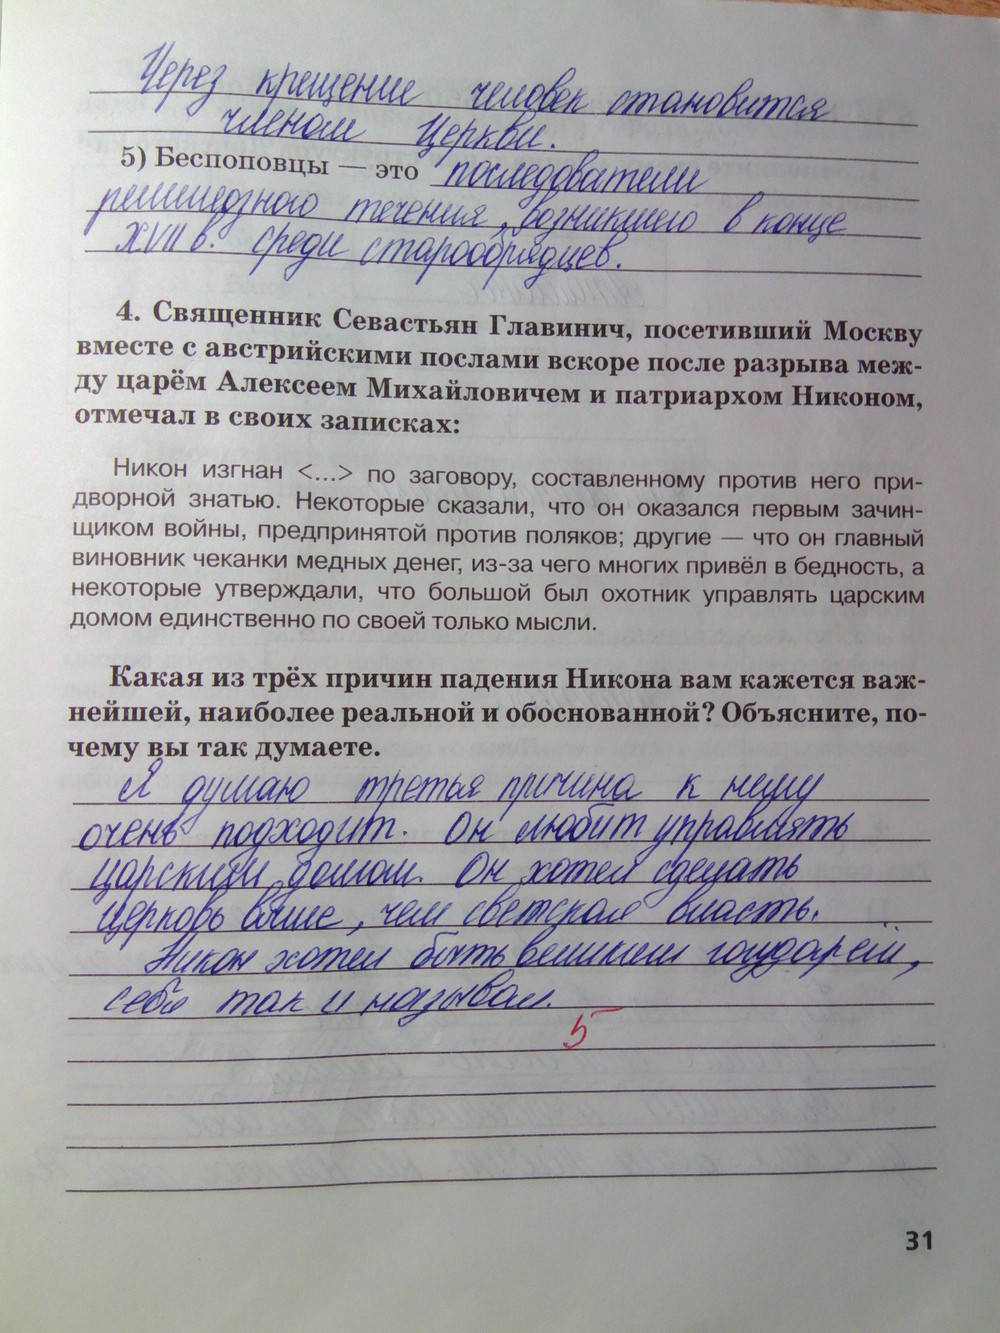 Через крещение человек становится
членом Церкви.
5) Беспоповцы — это последователи
религиозного течения, возникшего в конце
XVII в. среди старообрядцев.
4. Священник Севастьян Главинич, посетивший Москву
вместе с австрийскими послами вскоре после разрыва меж-
ду царём Алексеем Михайловичем и патриархом Никоном,
отмечал в своих записках:
Никон изгнан <...> по заговору, составленному против него при-
дворной знатью. Некоторые сказали, что он оказался первым зачин-
щиком войны, предпринятой против поляков; другие — что он главный
виновник чеканки медных денег, из-за чего многих привёл в бедность, а
некоторые утверждали, что большой был охотник управлять царским
домом единственно по своей только мысли.
Какая из трёх причин падения Никона вам кажется важ-
нейшей, наиболее реальной и обоснованной? Объясните, по-
чему вы так думаете.
Я думаю третья причина к нему
очень подходит. Он любит управлять
царским домом. Он хотел сделать
церковь выше, чем светская власть.
Никон хотел быть великим государем,
себя так и называл.
5
31